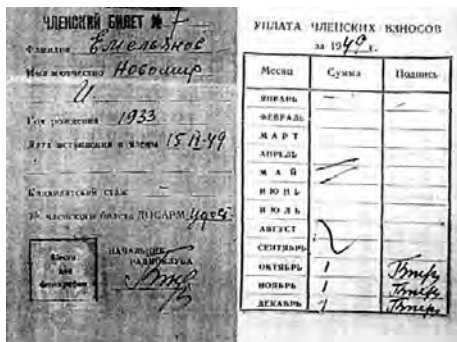 ЧЛЕНСКИЙ БИЛЕТ № 7
Фамилия Емельянов
Имя и отчество Новомир
И.
Год рождения 1933
Дата вступления в члены 15 II-49
Кандидатский стаж —
№ членского билета ДОСАРМ
Место
для
фотографии
НАЧАЛЬНИК
РАДИОКЛУБА
УПЛАТА ЧЛЕНСКИХ ВЗНОСОВ
за 1949 г.
Месяц Сумма Подпись
ЯНВАРЬ
ФЕВРАЛЬ
МАРТ
АПРЕЛЬ
МАЙ
ИЮНЬ
ИЮЛЬ
АВГУСТ
СЕНТЯБРЬ
ОКТЯБРЬ 1
НОЯБРЬ 1
ДЕКАБРЬ 1